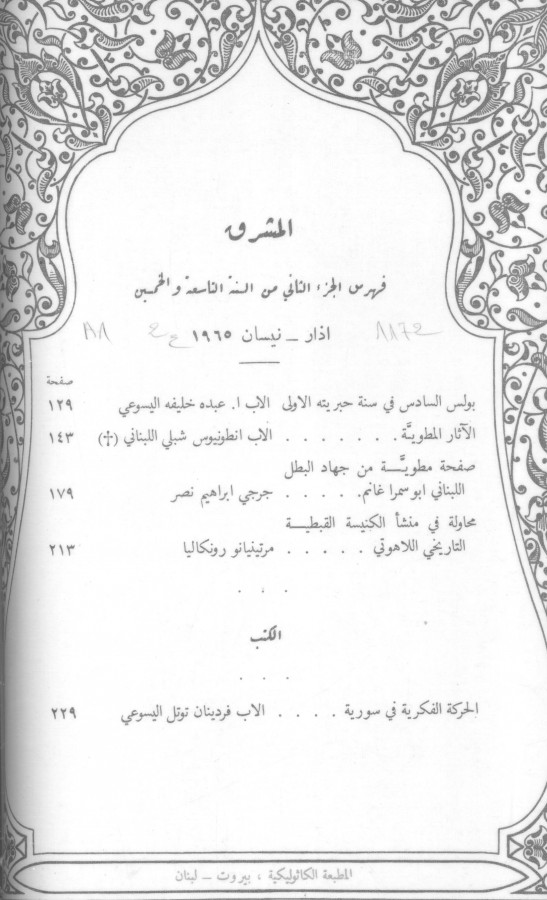 المشرق
فهرس الجزء الثاني من السنة التاسعة والخمسين
اذار – نيسان ١٩٦٥
صفحة
بولس السادس في سنة حبريته الاولى الاب ا. عبده خليفه اليسوعي ١٢٩
الآثار المطويَّة . . . . . . . الاب انطونيوس شبلي اللبناني (†) ١٤٣
صفحة مطويَّــة من جهاد البطل
اللبناني ابو سمرا غانم. . . . . . جرجي ابراهيم نصر ١٧٩
محاولة في منشأ الكنيسة القبطيــة
التاريخي اللاهوتي . . . . . مرتينيانو رونكاليا ٢١٣
. . .
الكتب
. . .
الحركة الفكرية في سورية . . . . الاب فردينان توتل اليسوعي ٢٢٩
المطبعة الكاثوليكية ، بيروت – لبنان